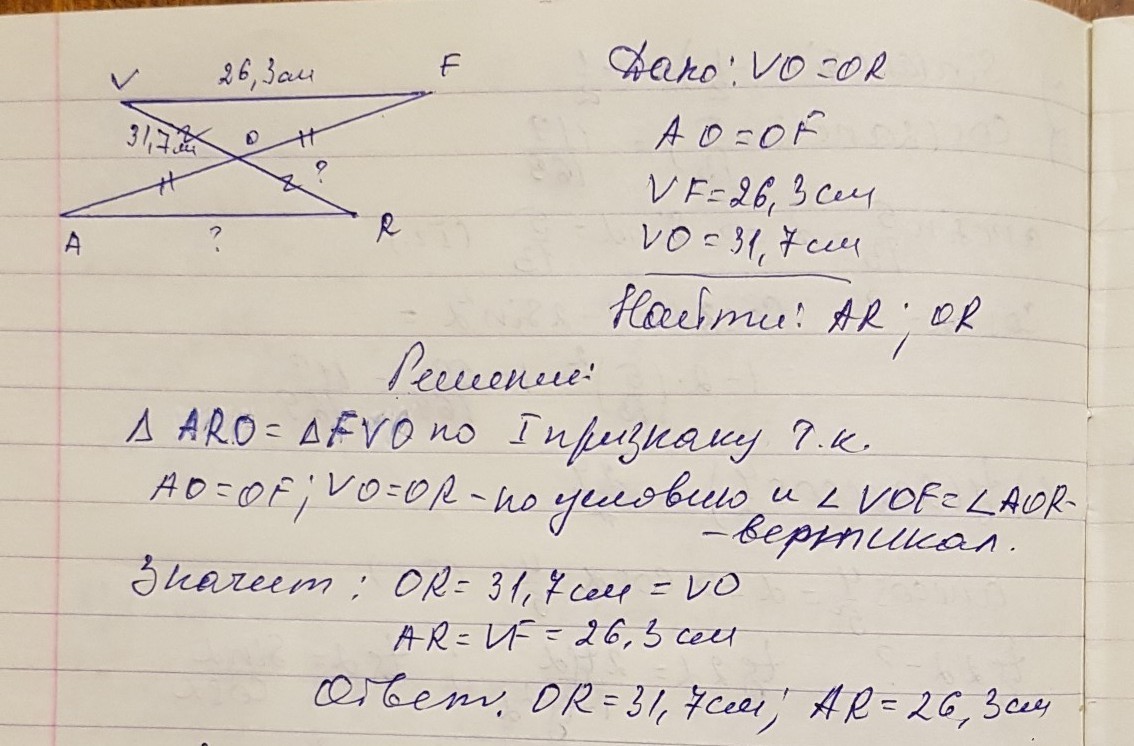 V 26,3см F
Дано: VO=OR
31,7см O
AO=OF
?
VF=26,3см
A ? R
VO=31,7см
Найти: AR; OR
Решение:
Δ ARO = Δ FVO по I признаку т.к.
AO=OF; VO=OR - по условию и ∠VOF=∠AOR-
-вертикал.
Значит: OR=31,7см = VO
AR=VF=26,3см
Ответ. OR=31,7см; AR=26,3см